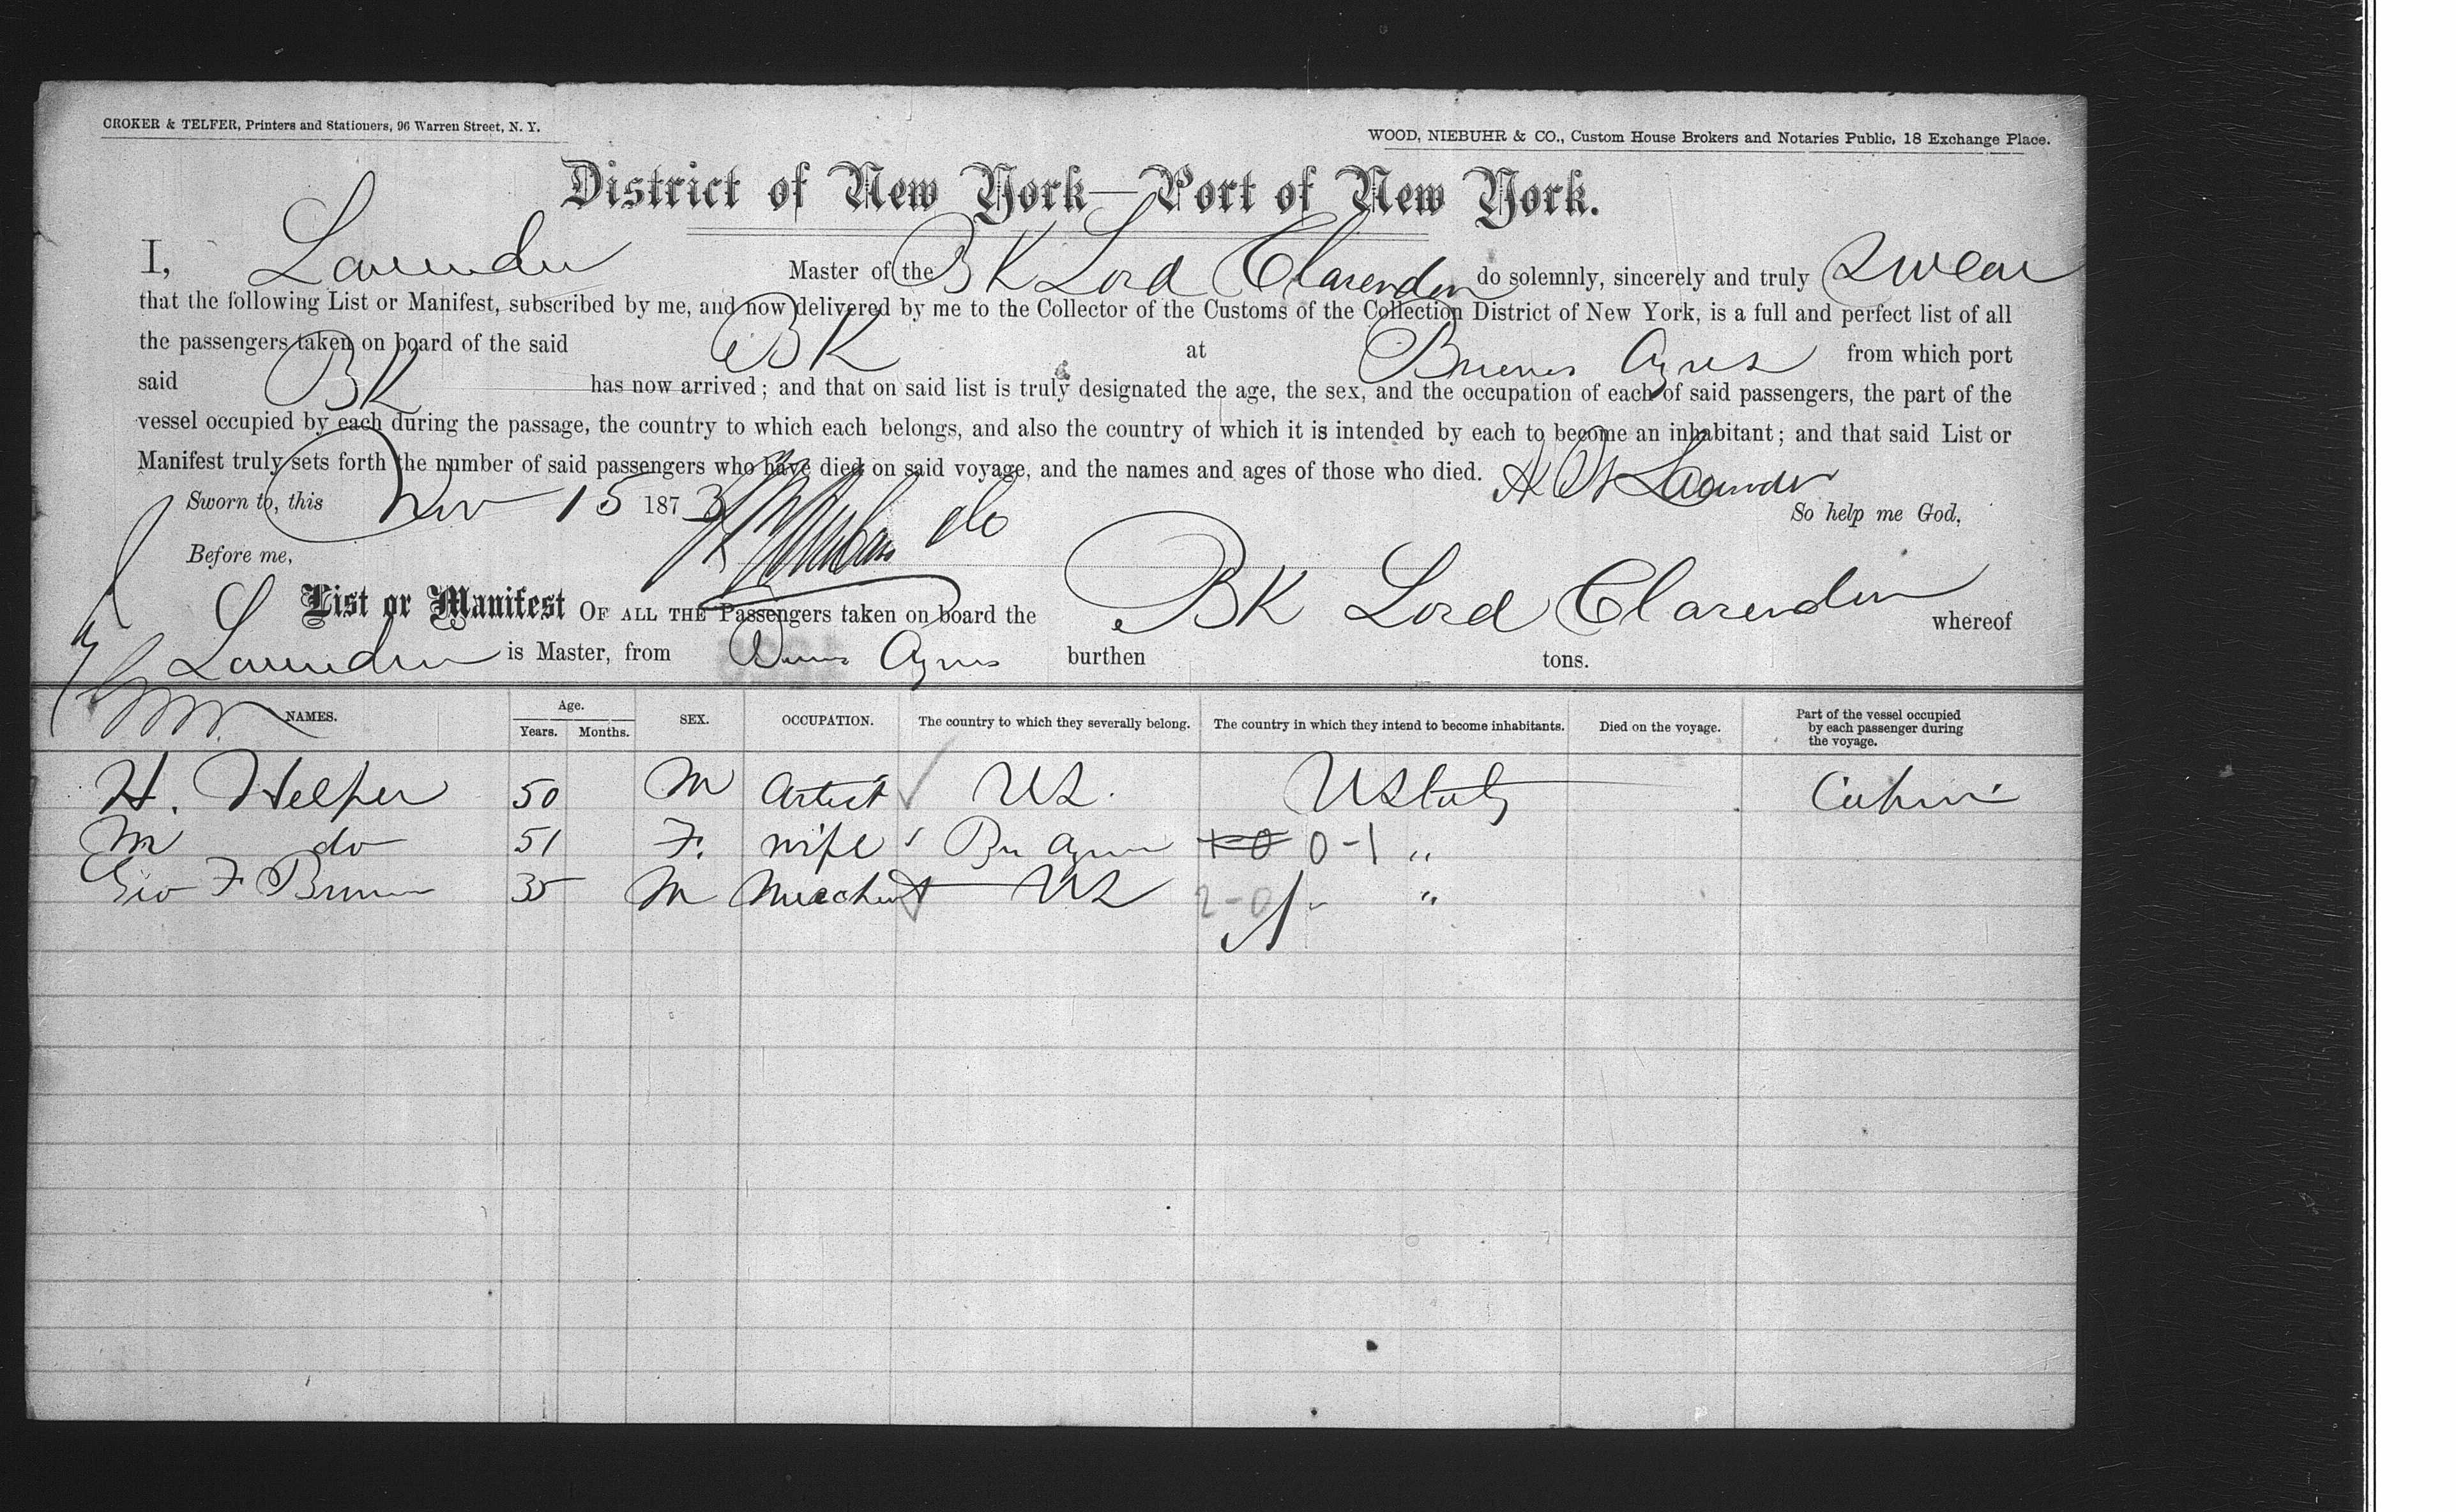 CROKER & TELFER, Printers and Stationers, 96 Warren Street, N. Y.
WOOD, NIEBUHR & CO., Custom House Brokers and Notaries Public, 18 Exchange Place.
District of New York—Port of New York.
I, Lavender Master of the BK Lord Clarendon do solemnly, sincerely and truly Swear
that the following List or Manifest, subscribed by me, and now delivered by me to the Collector of the Customs of the Collection District of New York, is a full and perfect list of all
the passengers taken on board of the said BK at Buenos Ayres from which port
said BK has now arrived; and that on said list is truly designated the age, the sex, and the occupation of each of said passengers, the part of the
vessel occupied by each during the passage, the country to which each belongs, and also the country of which it is intended by each to become an inhabitant; and that said List or
Manifest truly sets forth the number of said passengers who have died on said voyage, and the names and ages of those who died.
Sworn to, this Nov 15 1873 So help me God,
Before me,
List or Manifest OF ALL THE Passengers taken on board the BK Lord Clarendon whereof
Lavender is Master, from Buenos Ayres burthen tons.
NAMES. Age. Years. Months. SEX. OCCUPATION. The country to which they severally belong. The country in which they intend to become inhabitants. Died on the voyage. Part of the vessel occupied by each passenger during the voyage.
H. Helper 50 M Artist US. U States Cabin
M do 51 F. wife Bu Ayres 0-1 "
Geo F Brown 35 M Merchant US 2-0 " "